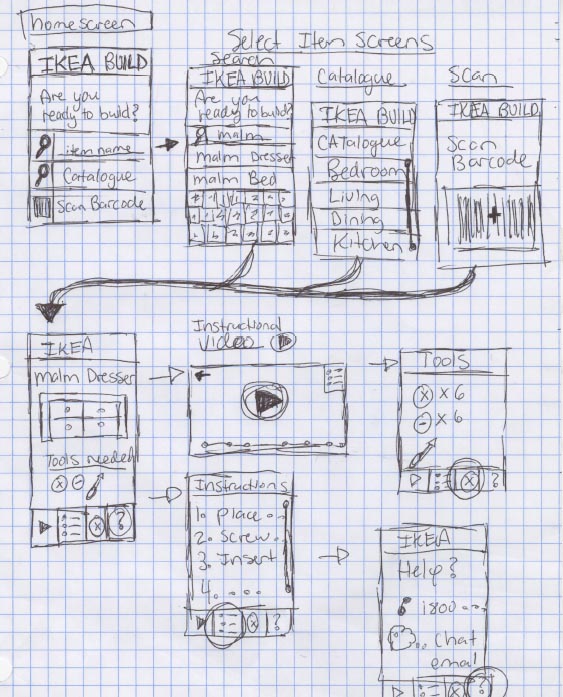 homescreen
IKEA BUILD
Are you
ready to build?
item name
Cartalogue
Scan Barcode
Select Item Screens
Search
IKEA BUILD
Are you
ready to build?
malm
malm Dresser
malm Bed
Catalogue
IKEA BUILD
CATalogue
Bedroom
Living
Dining
Kitchen
Scan
IKEA BUILD
Scan
Barcode
IKEA
malm Dresser
Tools needed
?
Instructional
Video
Tools
x 6
x 6
?
Instructions
1. Place
2. Screw
3. Insert
4. ....
?
IKEA
Help?
1800 ---
Chat
email
?